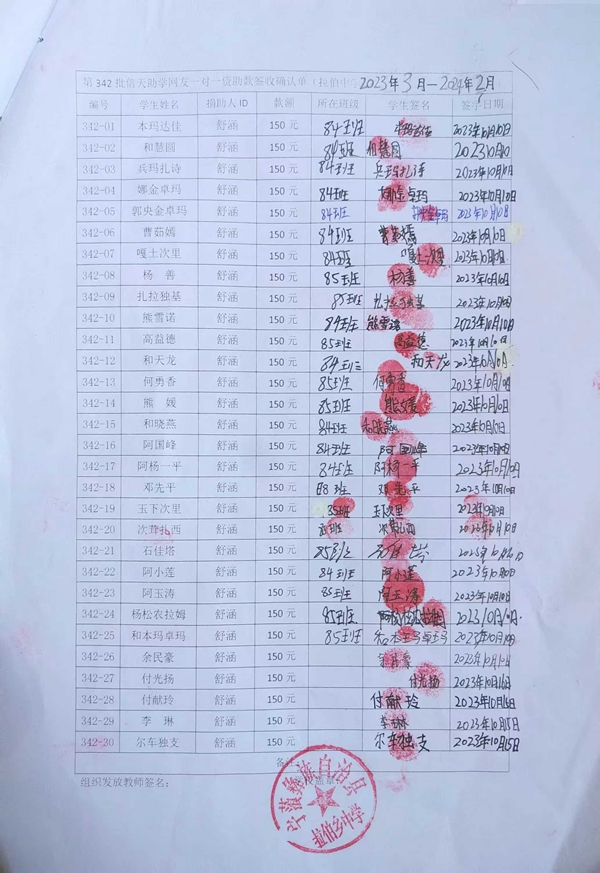 第 342 批信天助学网友一对一资助款签收确认单（拉伯中 2023年3月—2024年2月
编号 学生姓名 捐助人 ID 款额 所在班级 学生签名 签字日期
342-01 本玛达佳 舒涵 150 元 84班 本玛达佳 2023年10月10日
342-02 和慧圆 舒涵 150 元 84班 和慧圆 2023年10月10
342-03 兵玛扎诗 舒涵 150 元 84班 兵玛扎诗 2023年10月10日
342-04 娜金卓玛 舒涵 150 元 84班 娜金卓玛 2023年10月10日
342-05 郭央金卓玛 舒涵 150 元 84班 2023年10月10日
342-06 曹茹嫣 舒涵 150 元 84班 曹茹嫣 2023年10月10日
342-07 嘎土次里 舒涵 150 元 84班 嘎土次里 2023年10月10日
342-08 杨 善 舒涵 150 元 85班 杨善 2023年10月10日
342-09 扎拉独基 舒涵 150 元 85班 扎拉独基 2023年10月10日
342-10 熊雪诺 舒涵 150 元 84班 熊雪诺 2023年10月10日
342-11 高益德 舒涵 150 元 85班 高益德 2023年10月10日
342-12 和天龙 舒涵 150 元 84班 和天龙 2023年10月10日
342-13 何勇香 舒涵 150 元 85班 何勇香 2023年10月10日
342-14 熊 媛 舒涵 150 元 85班 熊媛 2023年10月10日
342-15 和晓燕 舒涵 150 元 84班 和晓燕 2023年10月10日
342-16 阿国峰 舒涵 150 元 84班 阿国峰 2023年10月10日
342-17 阿杨一平 舒涵 150 元 84班 阿杨一平 2023年10月10日
342-18 邓先平 舒涵 150 元 班 邓先平 2023年10月10日
342-19 玉下次里 舒涵 150 元 85班 玉下次里 2023年
342-20 次茸扎西 舒涵 150 元 班 次茸扎西 2023年10月10日
342-21 石佳塔 舒涵 150 元 85班 石佳塔
342-22 阿小莲 舒涵 150 元 84班 阿小莲 2023年10月10日
342-23 阿玉涛 舒涵 150 元 85班 阿玉涛 2023年10月10日
342-24 杨松农拉姆 舒涵 150 元 85班 2023年10月10日
342-25 和本玛卓玛 舒涵 150 元 85班 和本玛卓玛 2023年10月10日
342-26 余民豪 舒涵 150 元 余民豪 2023年10月
342-27 付光扬 舒涵 150 元 付光扬 2023年10月16日
342-28 付献玲 舒涵 150 元 付献玲 2023年10月16日
342-29 李 琳 舒涵 150 元 李琳 2023年10月15日
342-30 尔车独支 舒涵 150 元 尔车独支 2023年10月15日
备注
组织发放教师签名：
宁蒗彝族自治县
拉伯乡中学